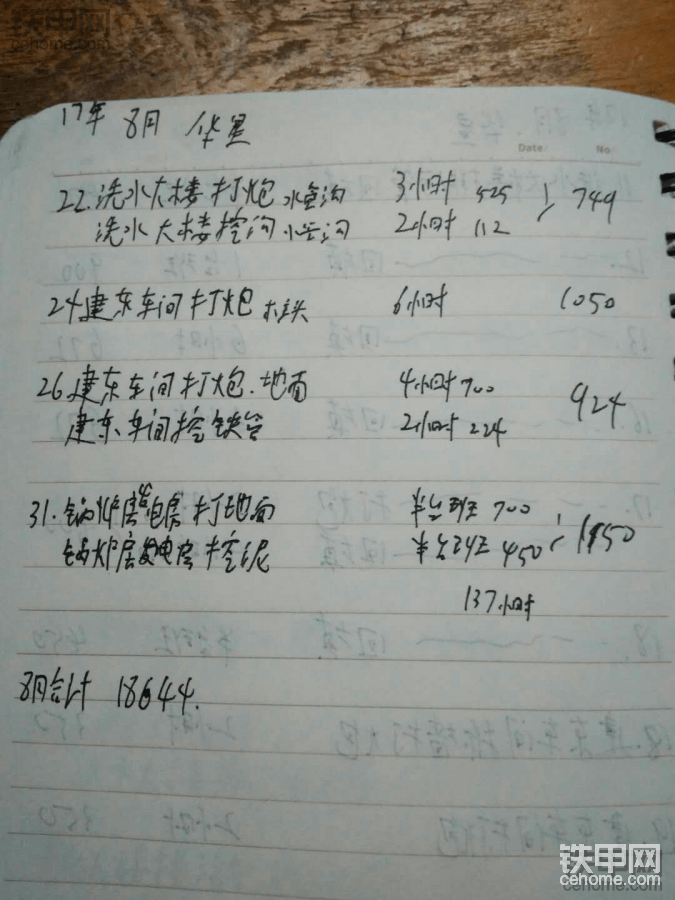 铁甲网
cehome.com
17年 8月 华星
Date No
22.洗水大楼打炮 水鱼沟 3小时 525 749
洗水大楼挖沟 2小时 112
24.建东车间打炮 6小时 1050
26.建东车间打炮.地面 4小时 700 924
建东车间挖铁管 2小时 224
31.锅炉房电房打地面 半台班 700 1150
锅炉房发电房挖泥 半台班 450
137小时
8月合计 18644.
铁甲网
cehome.com